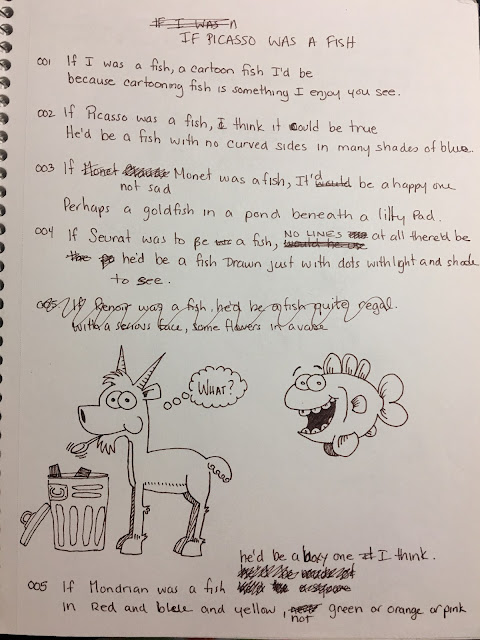 IF I WAS A
IF PICASSO WAS A FISH
001 If I was a fish, a cartoon fish I'd be
because cartooning fish is something I enjoy you see.
002 If Picasso was a fish, I think it could be true
He'd be a fish with no curved sides in many shades of blue.
003 If Monet Claude Monet was a fish, It'd would be a happy one
not sad
Perhaps a goldfish in a pond beneath a lilly Pad.
NO LINES
004 If Seurat was to be a fish, would he use at all there'd be
he'd be a fish Drawn just with dots with light and shade
to see.
005 If Renoir was a fish, he'd be a fish quite regal.
With a serious face, some flowers in a vase
WHAT?
he'd be a boxy one I think.
005 If Mondrian was a fish
in Red and blue and yellow, not green or orange or pink